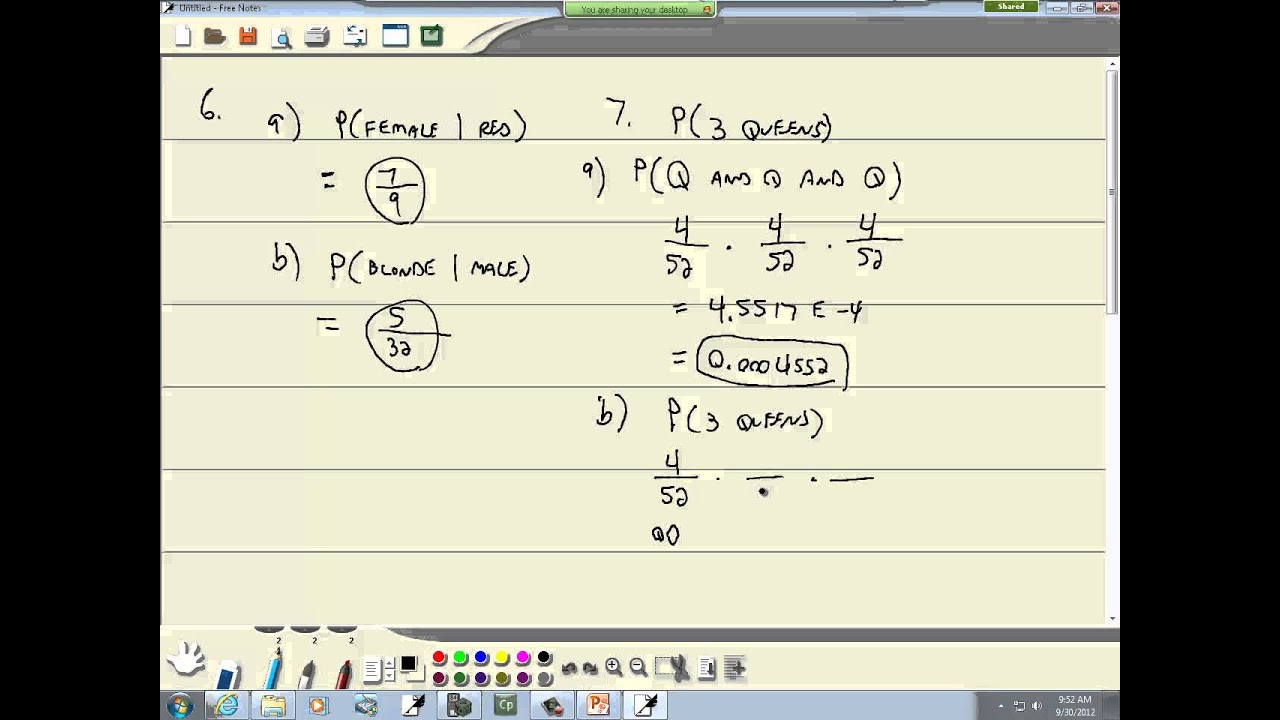 Untitled - Free Notes
You are sharing your desktop
Shared
6.
a) P(FEMALE | RED)
= 7/9
b) P(BLONDE | MALE)
= 5/32
7. P(3 QUEENS)
a) P(Q AND Q AND Q)
4/52 · 4/52 · 4/52
= 4.5517 E-4
= 0.0004552
b) P(3 QUEENS)
4/52 · — · —
2 2 2
Cp
9:52 AM
9/30/2012